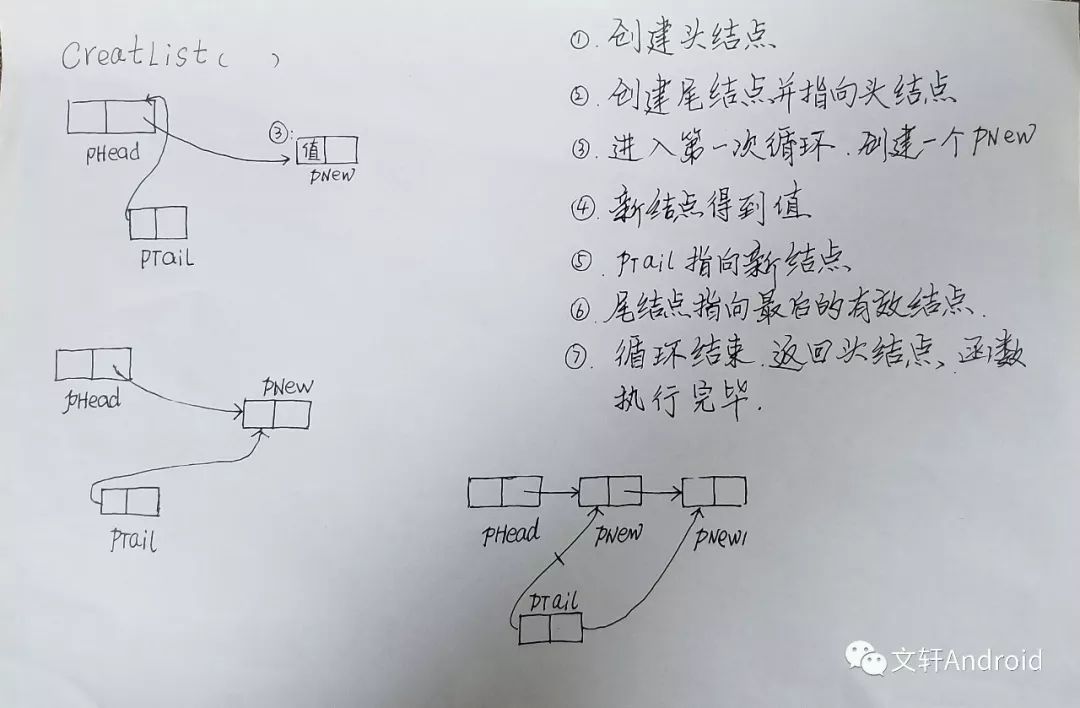 CreatList( )
pHead
③:
值
pNew
pTail
pHead
pNew
pTail
①. 创建头结点
②. 创建尾结点并指向头结点
③. 进入第一次循环. 创建一个pNew
④. 新结点得到值
⑤. pTail指向新结点
⑥. 尾结点指向最后的有效结点.
⑦. 循环结束. 返回头结点、函数
执行完毕.
pHead
pNew
pNew1
pTail
文轩Android